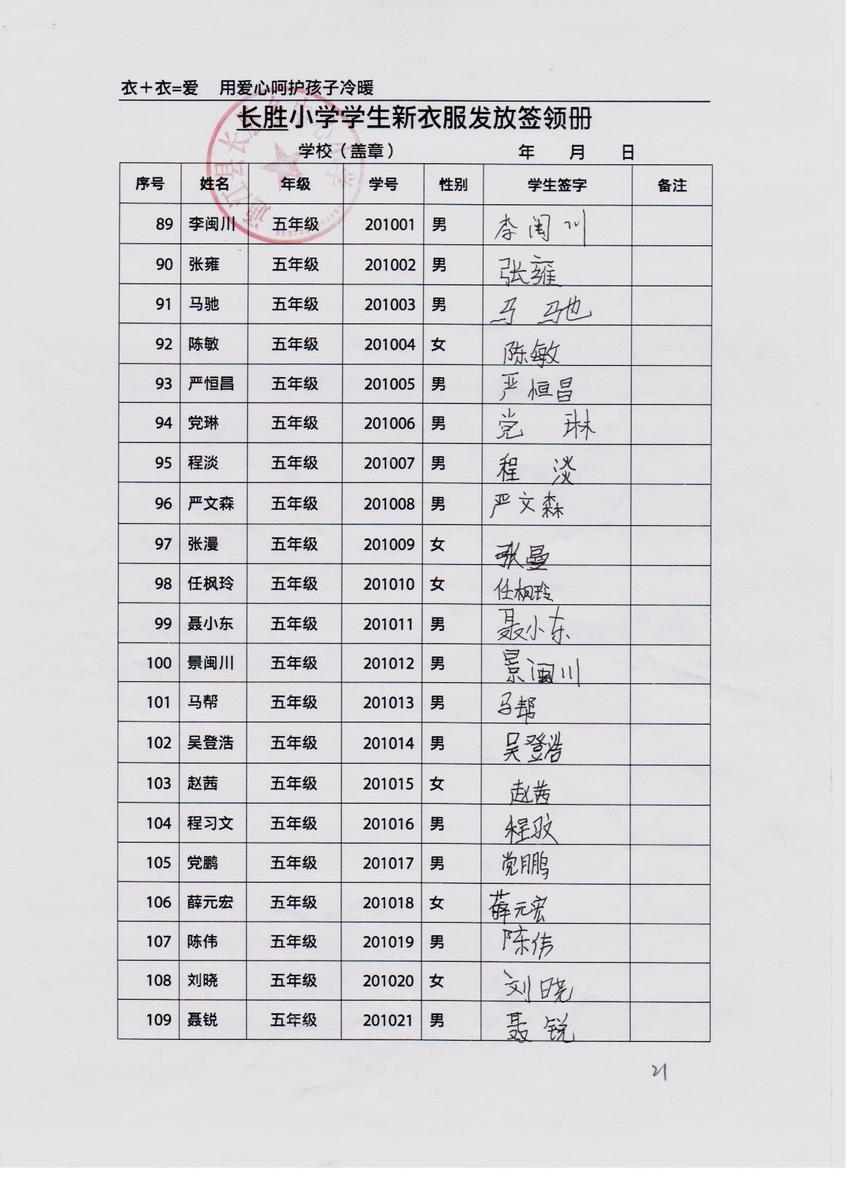 衣+衣=爱 用爱心呵护孩子冷暖
长胜小学学生新衣服发放签领册
学校(盖章) 年 月 日
序号 姓名 年级 学号 性别 学生签字 备注
89 李闽川 五年级 201001 男 李闽川
90 张雍 五年级 201002 男 张雍
91 马驰 五年级 201003 男 马驰
92 陈敏 五年级 201004 女 陈敏
93 严恒昌 五年级 201005 男 严恒昌
94 党琳 五年级 201006 男 党琳
95 程淡 五年级 201007 男 程淡
96 严文森 五年级 201008 男 严文森
97 张漫 五年级 201009 女 张曼
98 任枫玲 五年级 201010 女 任枫玲
99 聂小东 五年级 201011 男 聂小东
100 景闽川 五年级 201012 男 景闽川
101 马帮 五年级 201013 男 马帮
102 吴登浩 五年级 201014 男 吴登浩
103 赵茜 五年级 201015 女 赵茜
104 程习文 五年级 201016 男 程
105 党鹏 五年级 201017 男 党鹏
106 薛元宏 五年级 201018 女 薛元宏
107 陈伟 五年级 201019 男 陈伟
108 刘晓 五年级 201020 女 刘晓
109 聂锐 五年级 201021 男 聂锐
21